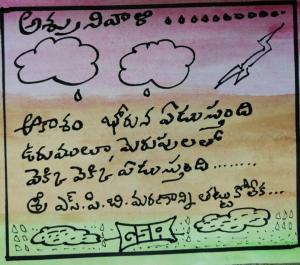 అశ్రు నివాళి ............
ఆకాశం భోరున ఏడుస్తుంది
ఉరుములూ, మెరుపులలో
వెక్కి వెక్కి ఏడుస్తుంది........
శ్రీ ఎస్.పి.బి. మరణాన్ని తట్టుకోలేక...